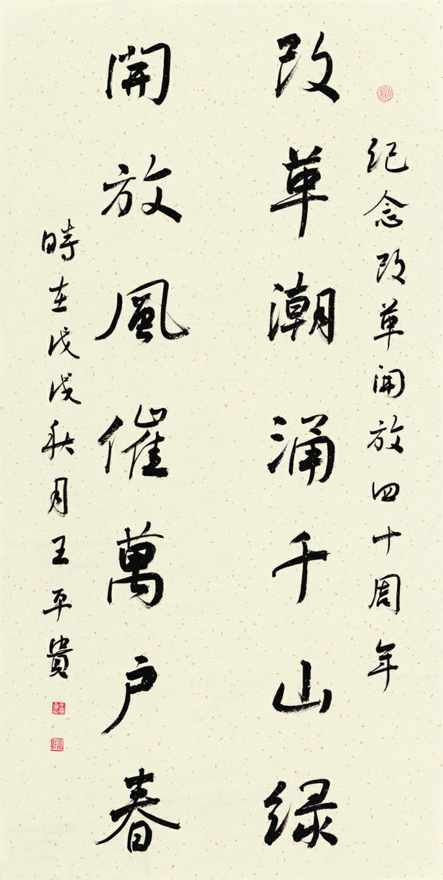 纪念改革開放四十周年
改革潮涌千山绿
開放風催萬户春
時在戊戌秋月王平貴